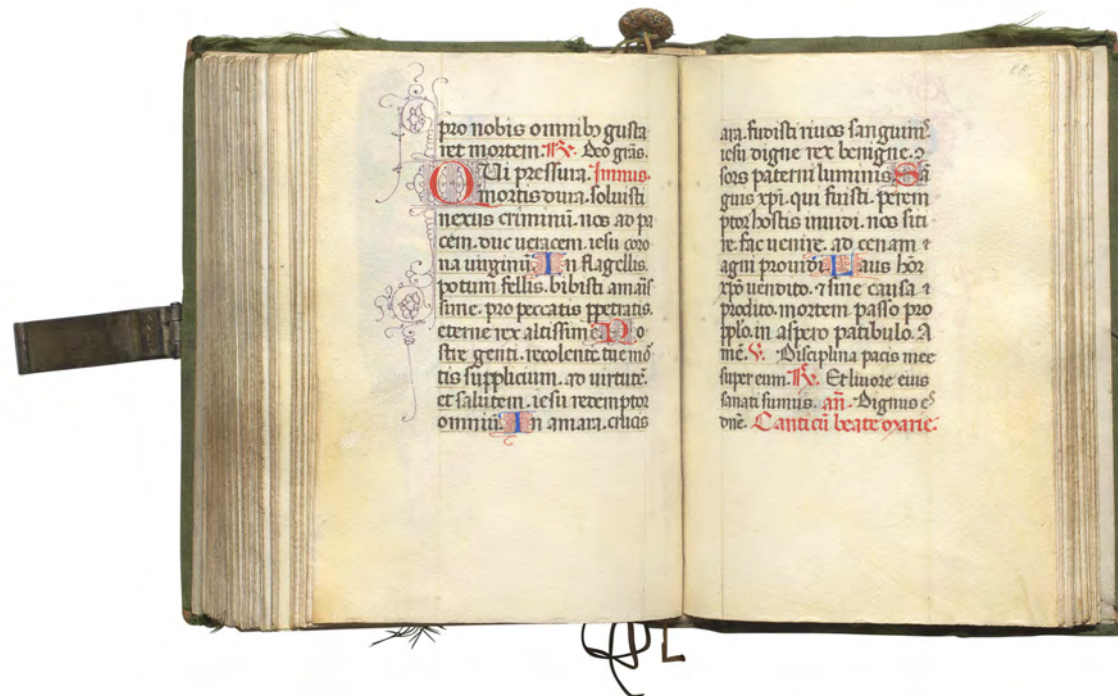 pro nobis omnibꝫ gusta
ret mortem. R. Deo grãs.
QUi pressura. Imnus.
mortis dura. soluisti
nexus criminũ. nos ad pa
cem. duc ueracem. iesu coro
na uirginũ. In flagellis.
potum fellis. bibisti amaris
sime. pro peccatis ꝑpetratis.
eterne rex altissime. No
stre genti. recolenti. tue mõ
tis supplicium. ad uirtutẽ.
et salutem. iesu redemptor
omniũ. In amara. crucis
88.
ara. fudisti riuos sanguinis
iesu digne rex benigne. ⁊
sors paterni luminis. Sã
guis xp̃i. qui fuisti. perem
ptor hostis inuidi. nos siti
re. fac uenire. ad cenam ⁊
agni prouidi. Laus hõr
xp̃o uendito. ⁊ sine causa ⁊
prodito. mortem passo pro
pplo. in aspero patibulo. A
mẽ. V. Disciplina pacis mee
super eum. R. Et liuore eius
sanati sumus. añ. Dignus es
dñe. Canticũ beate marie.